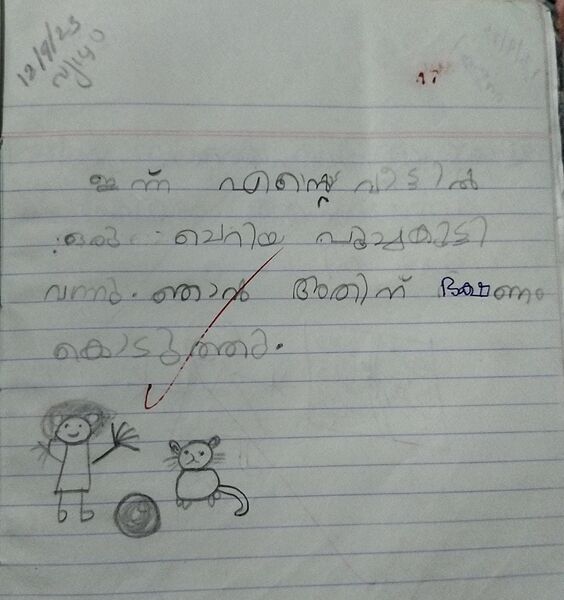 12/9/23
വ്യാഴം
17
ഇന്ന് എന്റെ വീട്ടിൽ
ഒരു ചെറിയ പൂച്ചകുട്ടി
വന്നു. ഞാൻ അതിന് ഭക്ഷണം
കൊടുത്തു.